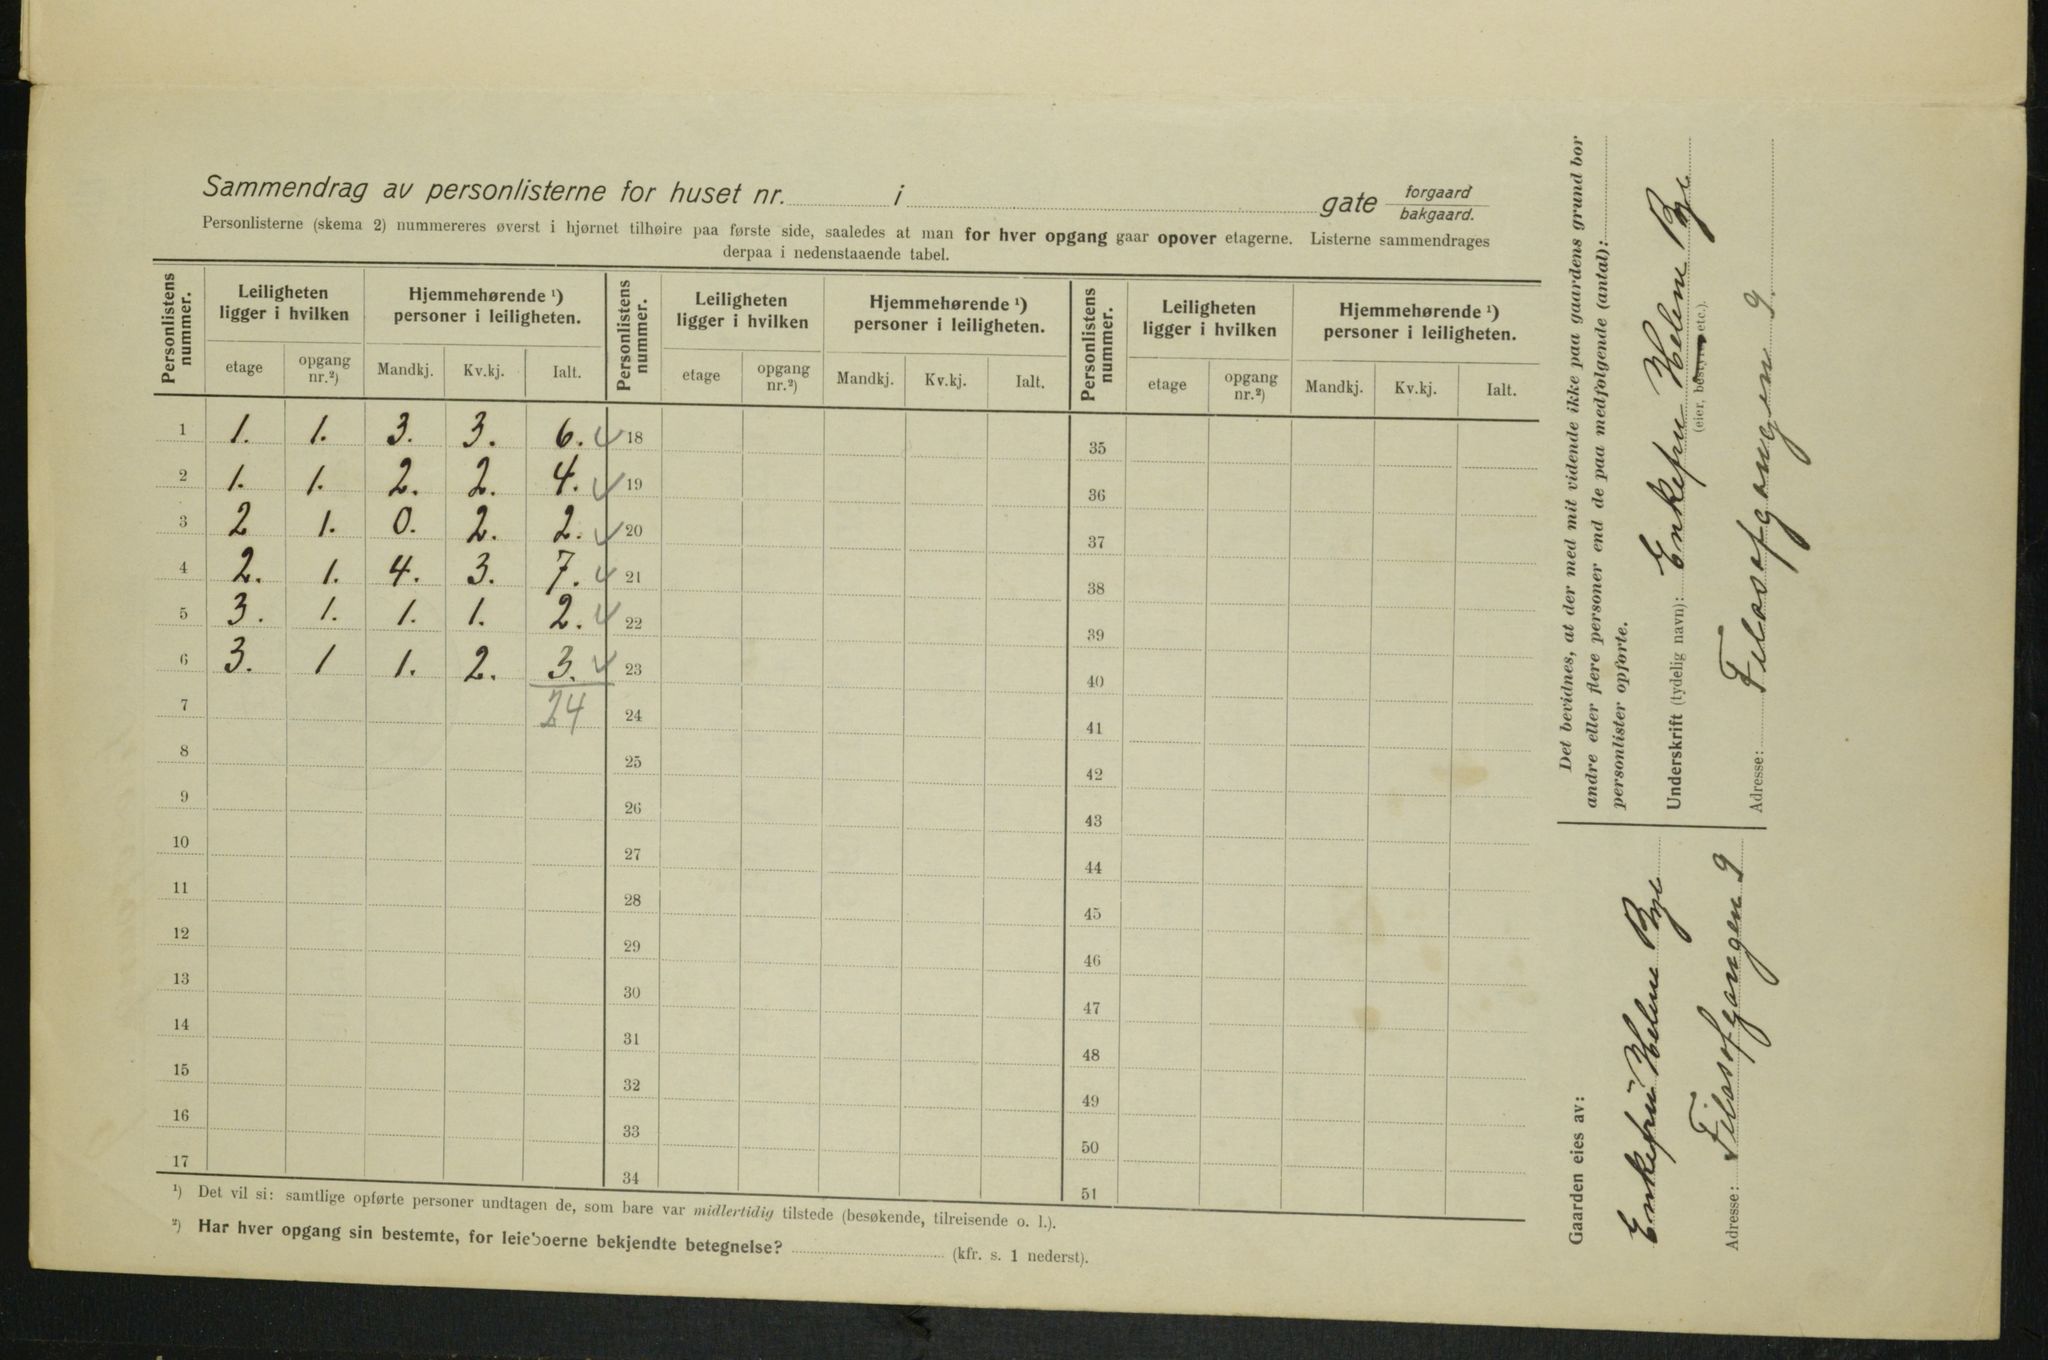 Sammendrag av personlisterne for huset nr. i gate forgaard
bakgaard.
Personlisterne (skema 2) nummereres øverst i hjørnet tilhøire paa første side, saaledes at man for hver opgang gaar opover etagerne. Listerne sammendrages
derpaa i nedenstaaende tabel.
Personlistens nummer. Leiligheten ligger i hvilken Hjemmehørende ¹) personer i leiligheten. Personlistens nummer. Leiligheten ligger i hvilken Hjemmehørende ¹) personer i leiligheten. Personlistens nummer. Leiligheten ligger i hvilken Hjemmehørende ¹) personer i leiligheten.
etage opgang nr.²) Mandkj. Kv.kj. Ialt. etage opgang nr.²) Mandkj. Kv.kj. Ialt. etage opgang nr.²) Mandkj. Kv.kj. Ialt.
1 1. 1. 3. 3. 6. 18 35
2 1. 1. 2. 2. 4. 19 36
3 2 1. 0. 2. 2. 20 37
4 2. 1. 4. 3. 7. 21 38
5 3. 1. 1. 1. 2. 22 39
6 3. 1 1. 2. 3. 23 40
7 24 24 41
8 25 42
9 26 43
10 27 44
11 28 45
12 29 46
13 30 47
14 31 48
15 32 49
16 33 50
17 34 51
¹) Det vil si: samtlige opførte personer undtagen de, som bare var midlertidig tilstede (besøkende, tilreisende o. l.).
²) Har hver opgang sin bestemte, for leieboerne bekjendte betegnelse? (kfr. s. 1 nederst).
Gaarden eies av:
Enkefru Helene Bye
Adresse: Filosofgangen 9
Det bevidnes, at der med mit vidende ikke paa gaardens grund bor
andre eller flere personer end de paa medfølgende (antal):
personlister opførte.
Underskrift (tydelig navn): Enkefru Helene Bye
(eier, bestyrer etc.).
Adresse: Filosofgangen 9.